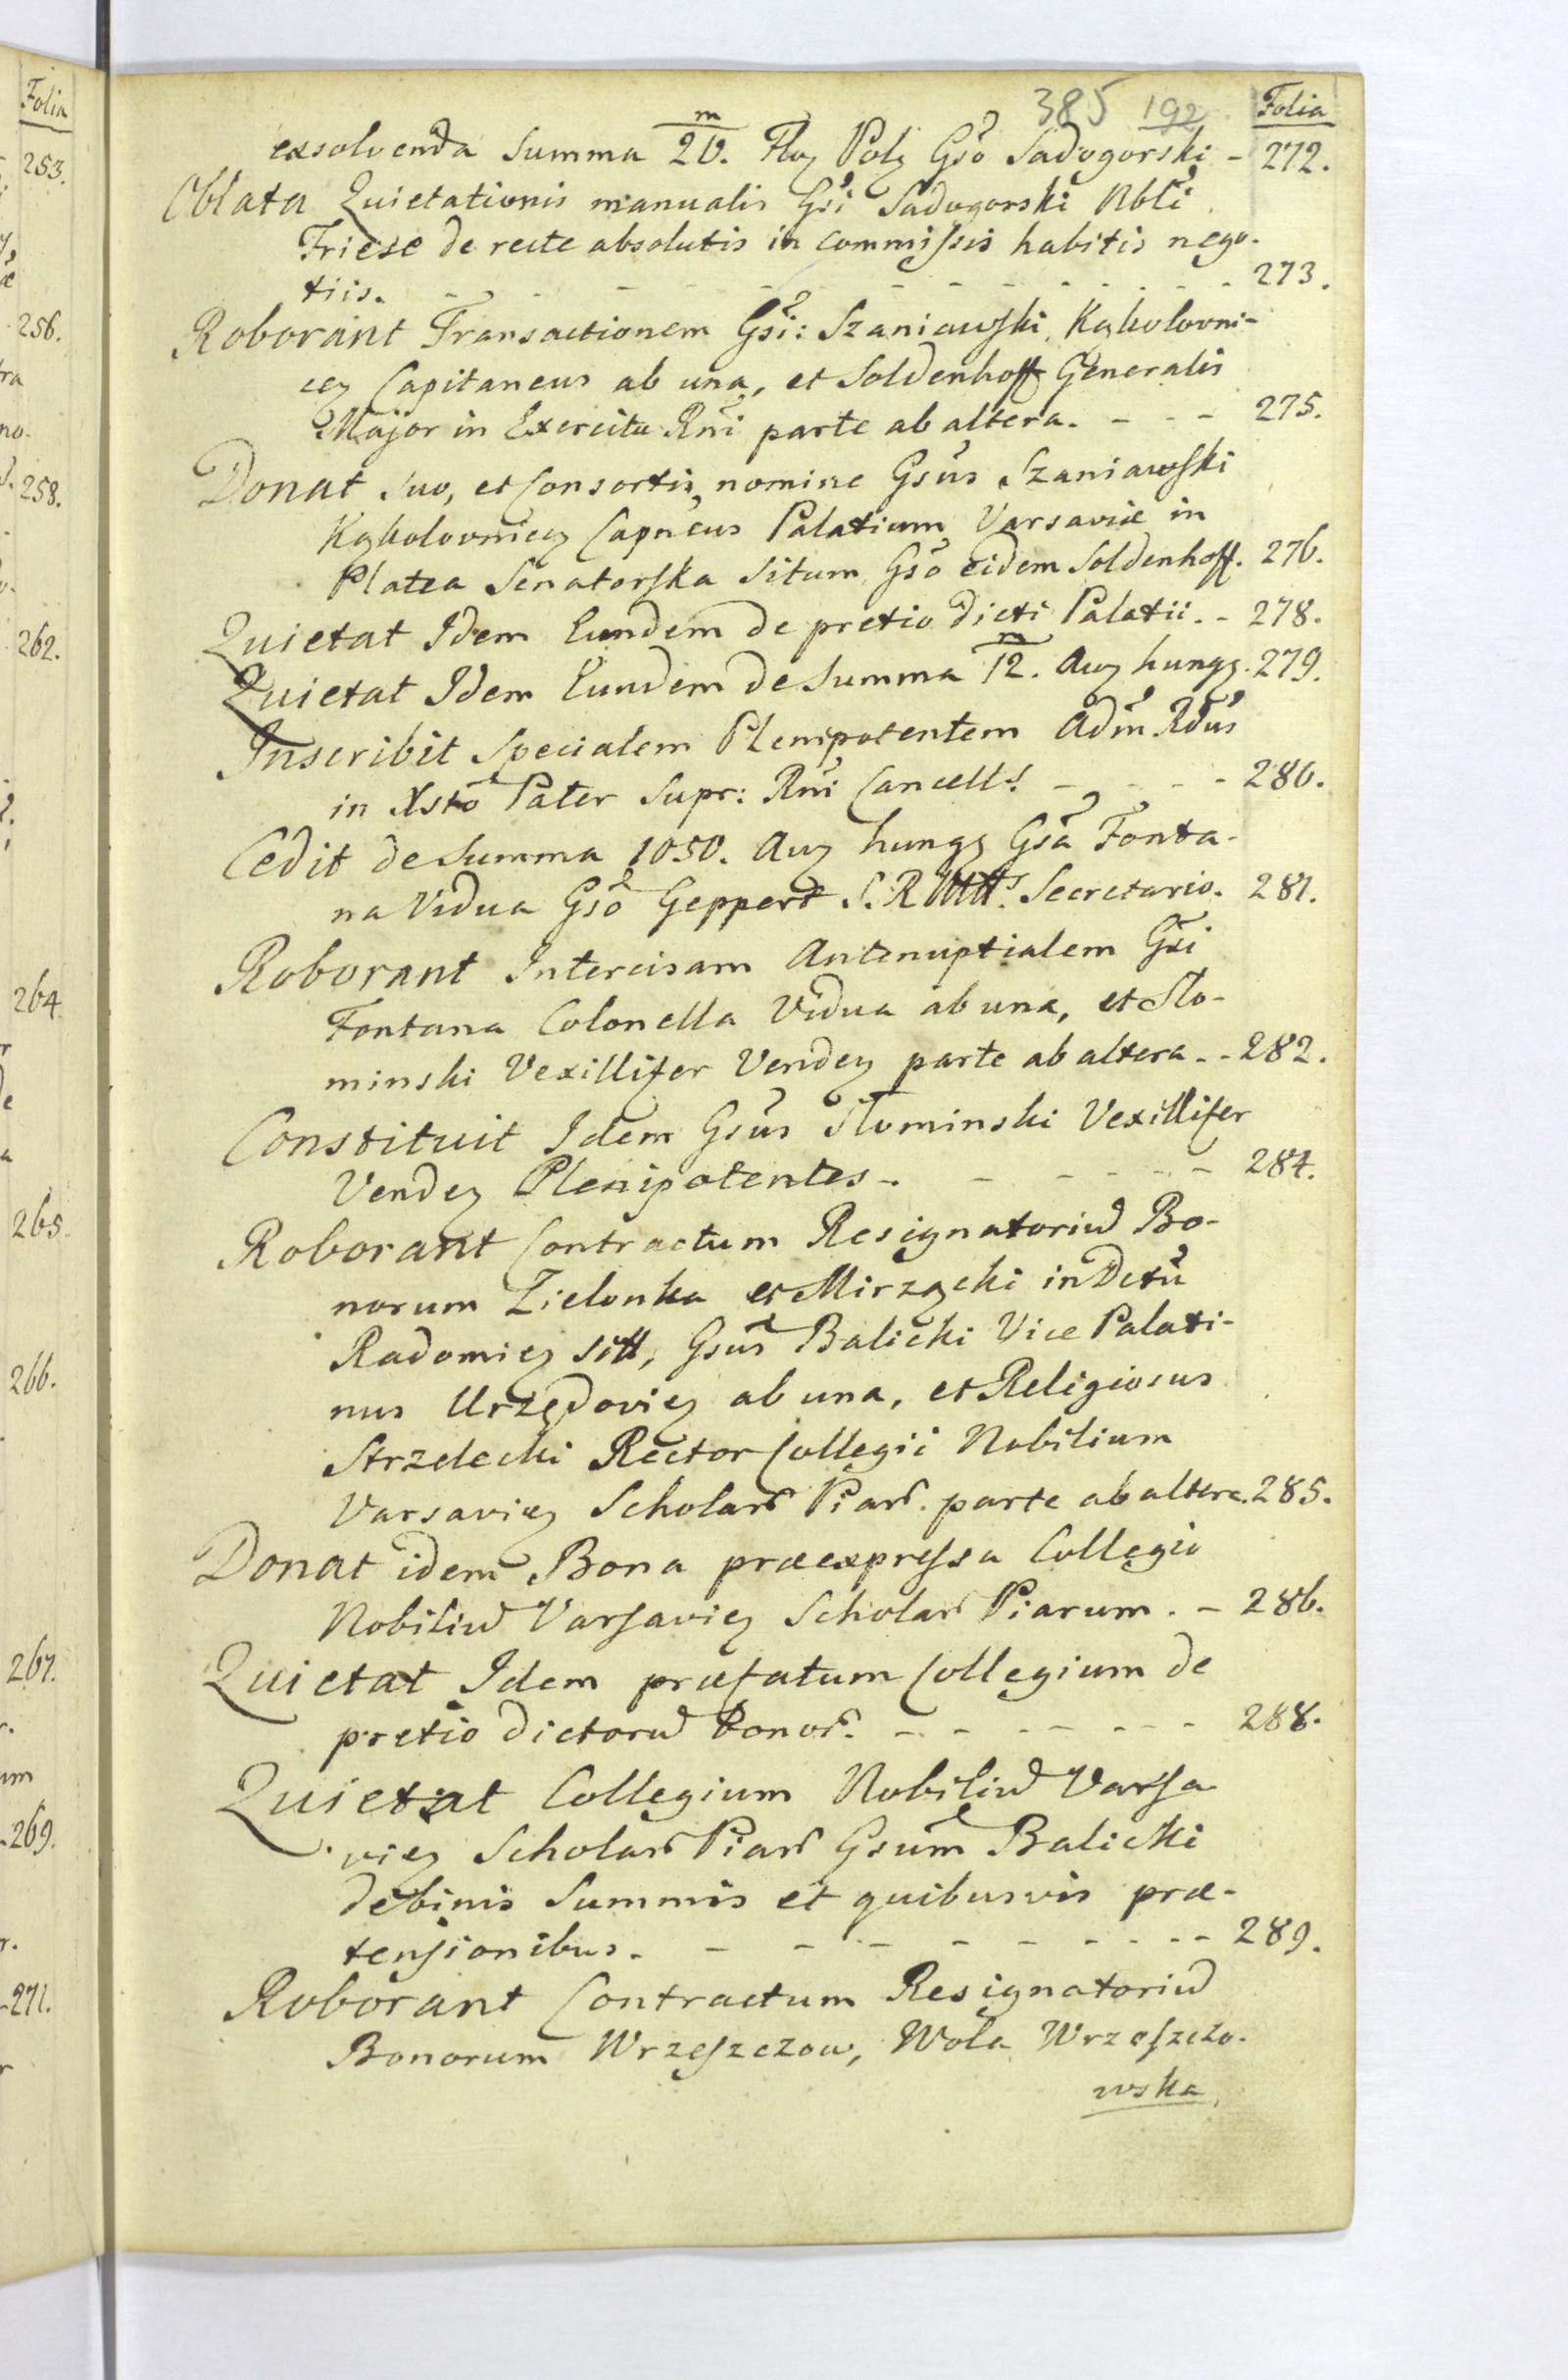 385 192 Folia
exsolvenda Summa 20.^m Floz Polz Gsō Sadogorski - 272.
Oblata Quietationis manualis Gsi Sadogorski Nbli
Friese de recte absolutis in commissis habitis nego-
tiis. - - - - - - - - - 273.
Roborant Transactionem Gsi: Szaniawski, Kąkolovni-
cez Capitaneus ab una, et Soldenhoff Generalis
Major in Exercitu Rni parte ab altera. - - - 275.
Donat suo, et Consortis nomine Gsus Szaniawski
Kąkolovnicez Capneus Palatium Varsaviæ in
Platea Senatorska situm Gsō eidem Soldenhoff. 276.
Quietat Idem Eundem de pretio dicti Palatii. - 278.
Quietat Idem Eundem de Summa 12.^m Auz hungz. 279.
Inscribit Specialem Plenipotentem Adm Rdus
in Xsto Pater Supr: Rni Cancell: - - - - 280.
Cedit de Summa 1050. Auz hungz Gsa Fonta-
na Vidua Gsō Geppert S. R Mtt. Secretario. 281.
Roborant Intercisam Antenuptialem Gsi
Fontana Colonella Vidua ab una, et Slo-
minski Vexillifer Vendez parte ab altera - - 282.
Constituit Idem Gsus Slominski Vexillifer
Vendez Plenipotentes - - - - - - 284.
Roborant Contractum Resignatoriu Bo-
norum Zielonka et Mirzącki in Dctu
Radomiez sitt, Gsus Balicki Vice Palati-
nus Urzędoviez ab una, et Religiosus
Strzelecki Rector Collegii Nobilium
Varsaviez Scholar Piar. parte ab altera. 285.
Donat idem Bona præexpressa Collegio
Nobiliu Varsaviez Scholar Piarum. - 286.
Quietat Idem præfatum Collegium de
pretio dictoru Bonor. - - - - - - 288.
Quietat Collegium Nobiliu Varsa
viez Scholar Piar Gsum Balicki
de binis Summis et quibusvis præ-
tensionibus. - - - - - - - - 289.
Roborant Contractum Resignatoriu
Bonorum Wrzeszczow, Wola Wrzeszczo-
wska
Folia
253.
256.
258.
262.
264
265.
266.
267.
269.
271.